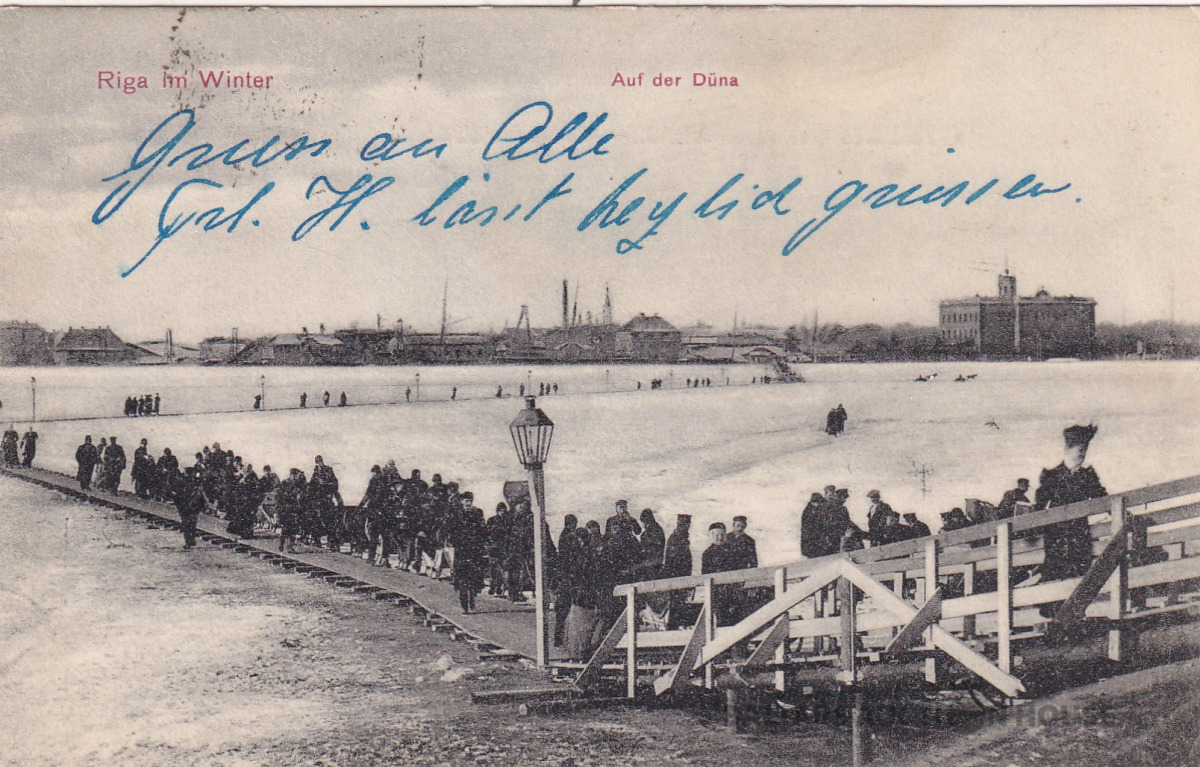 Riga im Winter
Auf der Düna
Gruss an Alle
Frl. H. lässt herzlich grüssen.
HOUSE